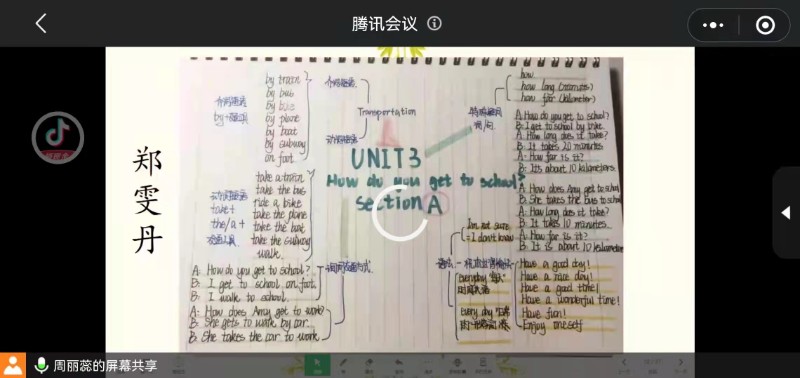 腾讯会议
郑雯丹
by train
by bus
by bike
by plane
by boat
by subway
on foot
介词短语
Transportation
动词短语
take a train
take the bus
ride a bike
take the plane
take the boat
take the subway
walk
take +
the/a +
交通工具
UNIT3
How do you get to school?
Section A
how
how long (minutes)
how far (kilometer)
A: How do you get to school?
B: I get to school by bike
A: How long does it take?
B: It takes 20 minutes
A: How far is it?
B: Its about 10 kilometers
A: How does Amy get to school
B: She takes the bus to school
A: How long does it take?
B: It takes 10 minutes.
A: How far is it?
B: It is about 10 kilometers
A: How do you get to school?
B: I get to school on foot
B: I walk to school.
A: How does Amy get to work?
B: She gets to work by car.
B: She takes the car to work
I'm not sure
= I don't know
everyday
every day
Have a good day!
Have a nice day!
Have a good time!
Have a wonderful time!
Have fun!
Enjoy oneself
周丽蕊的屏幕共享